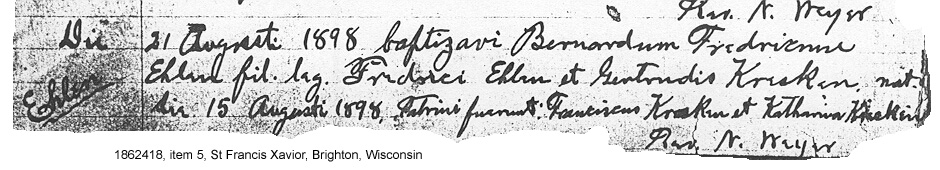 Rev. N. Weyer
Die 21 Augusti 1898 baptizavi Bernardum Fredricum
Ehlen
Ehlen fil. leg. Fredrici Ehlen et Gertrudis Kresken, nat.
die 15 Augusti 1898, Patrini fuerunt: Franciscus Kresken et Katharina Kresken
Rev. N. Weyer
1862418, item 5, St Francis Xavior, Brighton, Wisconsin